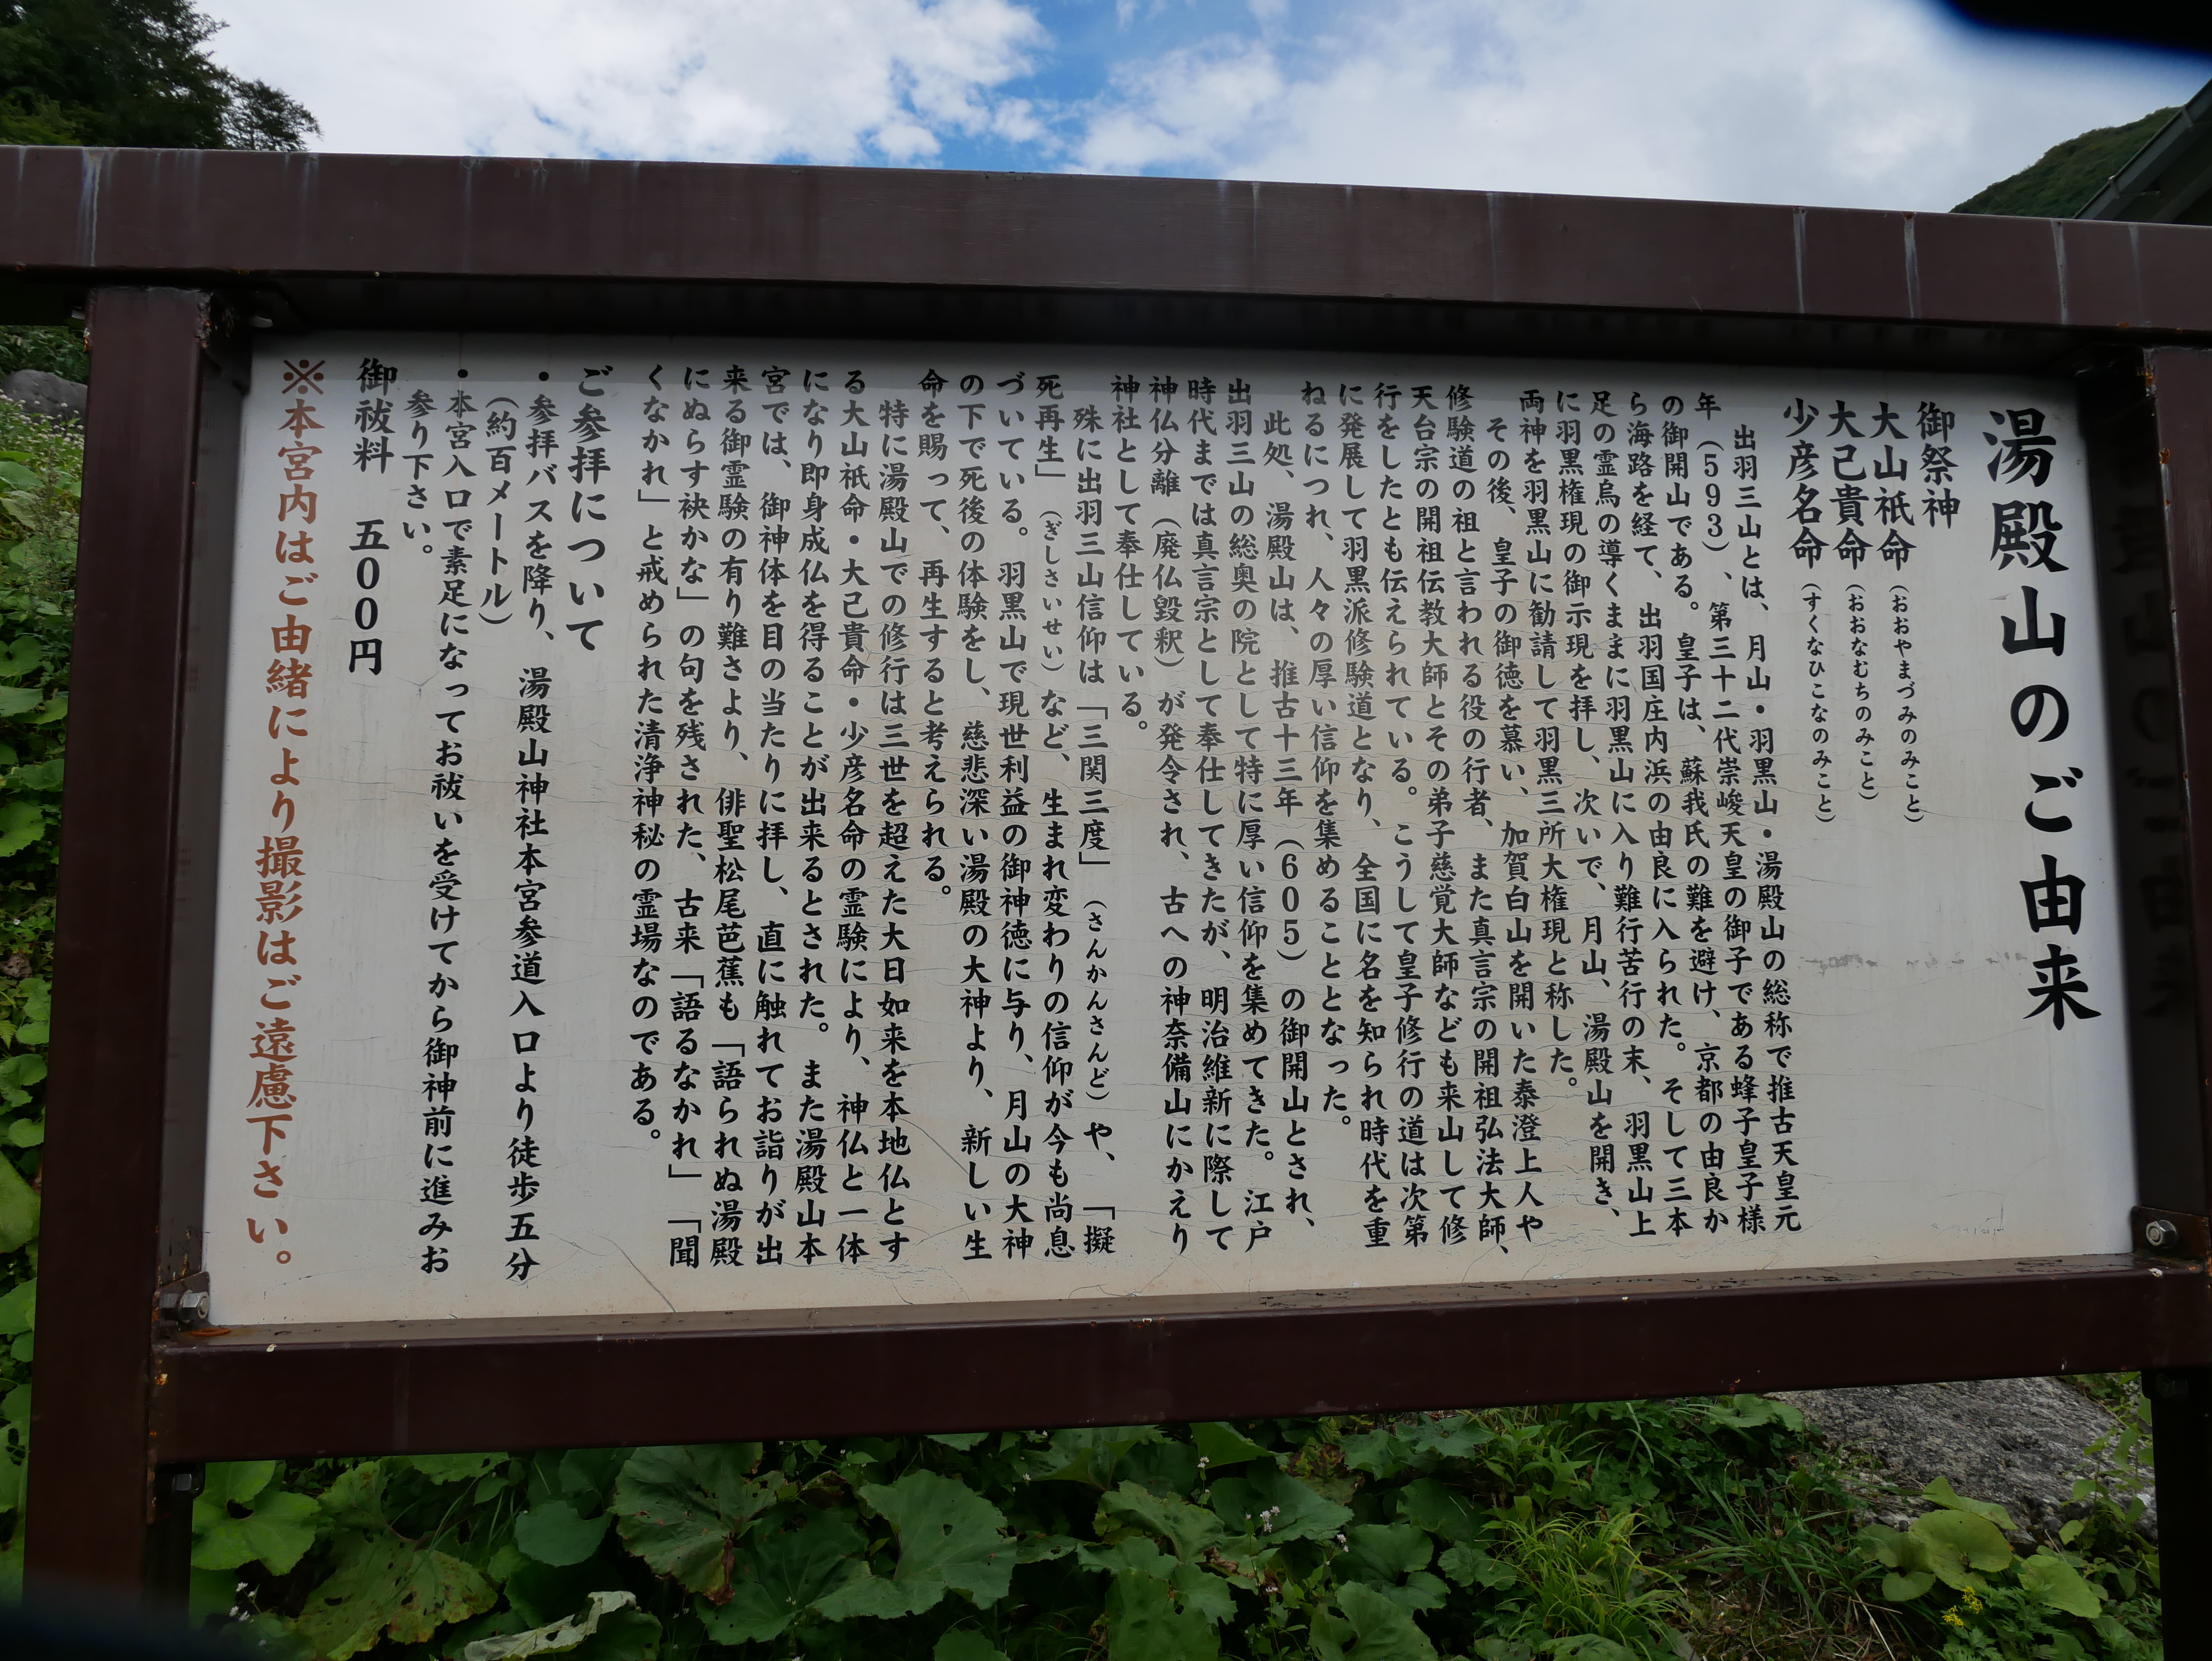 湯殿山のご由来
御祭神
大山祇命（おおやまづみのみこと）
大己貴命（おおなむちのみこと）
少彦名命（すくなひこなのみこと）
出羽三山とは、月山・羽黒山・湯殿山の総称で推古天皇元
年（593）、第三十二代崇峻天皇の御子である蜂子皇子様
の御開山である。皇子は、蘇我氏の難を避け、京都の由良か
ら海路を経て、出羽国庄内浜の由良に入られた。そして三本
足の霊烏の導くままに羽黒山に入り難行苦行の末、羽黒山上
に羽黒権現の御示現を拝し、次いで、月山、湯殿山を開き、
両神を羽黒山に勧請して羽黒三所大権現と称した。
その後、皇子の御徳を慕い、加賀白山を開いた泰澄上人や
修験道の祖と言われる役の行者、また真言宗の開祖弘法大師、
天台宗の開祖伝教大師とその弟子慈覚大師なども来山して修
行をしたとも伝えられている。こうして皇子修行の道は次第
に発展して羽黒派修験道となり、全国に名を知られ時代を重
ねるにつれ、人々の厚い信仰を集めることとなった。
此処、湯殿山は、推古十三年（605）の御開山とされ、
出羽三山の総奥の院として特に厚い信仰を集めてきた。江戸
時代までは真言宗として奉仕してきたが、明治維新に際して
神仏分離（廃仏毀釈）が発令され、古への神奈備山にかえり
神社として奉仕している。
殊に出羽三山信仰は「三関三度」（さんかんさんど）や、「擬
死再生」（ぎしさいせい）など、生まれ変わりの信仰が今も尚息
づいている。羽黒山で現世利益の御神徳に与り、月山の大神
の下で死後の体験をし、慈悲深い湯殿の大神より、新しい生
命を賜って、再生すると考えられる。
特に湯殿山での修行は三世を超えた大日如来を本地仏とす
る大山祇命・大己貴命・少彦名命の霊験により、神仏と一体
になり即身成仏を得ることが出来るとされた。また湯殿山本
宮では、御神体を目の当たりに拝し、直に触れてお詣りが出
来る御霊験の有り難さより、俳聖松尾芭蕉も「語られぬ湯殿
にぬらす袂かな」の句を残された、古来「語るなかれ」「聞
くなかれ」と戒められた清浄神秘の霊場なのである。
ご参拝について
・参拝バスを降り、湯殿山神社本宮参道入口より徒歩五分
（約百メートル）
・本宮入口で素足になってお祓いを受けてから御神前に進みお
参り下さい。
御祓料　五００円
※本宮内はご由緒により撮影はご遠慮下さい。